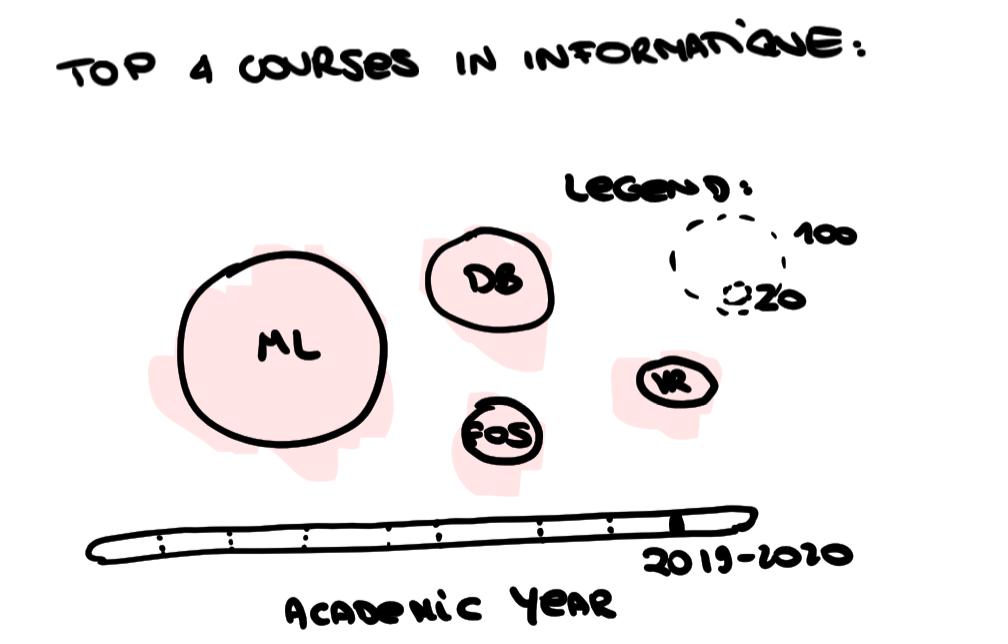 TOP 4 COURSES IN INFORMATIQUE:
LEGEND:
100
20
DB
ML
VR
FOS
2019-2020
ACADEMIC YEAR